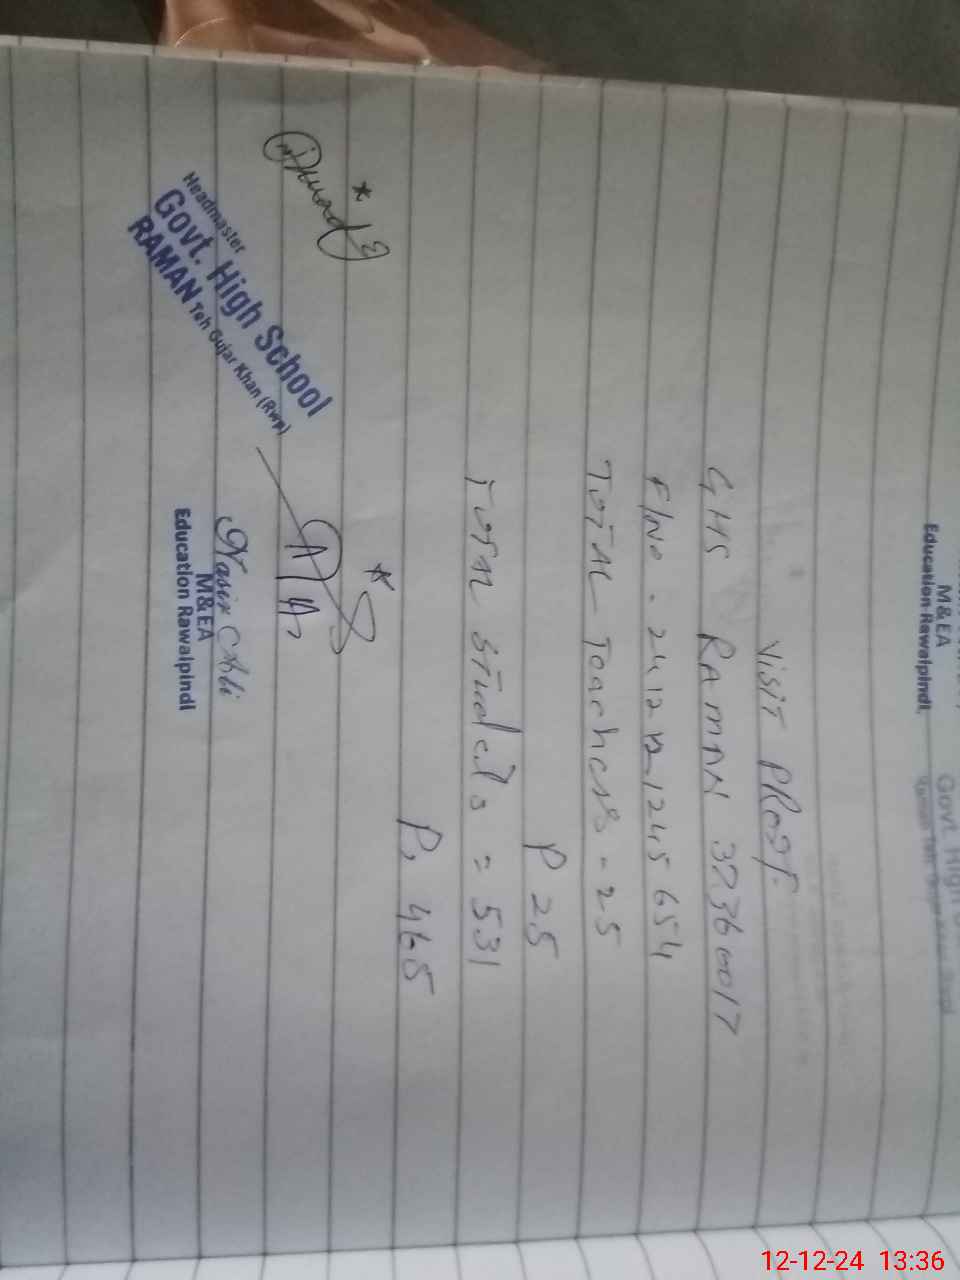 M&EA
Education Rawalpindi
VISIT PROOF.
GHS RAMAN 37360017
F/No - 2412121245654
TOTAL Teachers - 25
P 25
Total Students = 531
P, 465
Headmaster
Govt. High School
RAMAN Teh Gujar Khan (Rwp)
Nasir Ali
M&EA
Education Rawalpindi
12-12-24 13:36